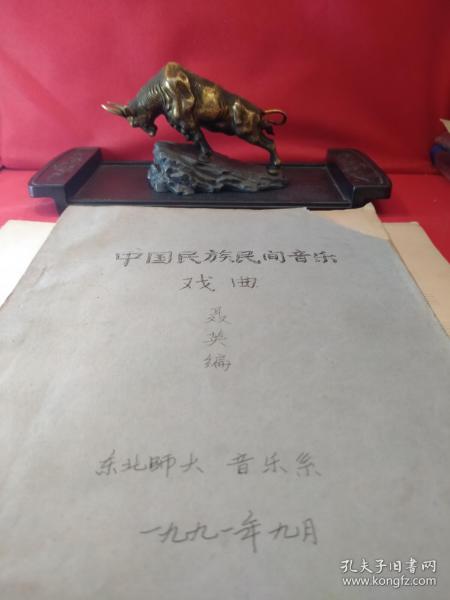 中国民族民间音乐
戏曲
聂
英
编
东北師大 音乐系
一九九一年九月
孔夫子旧书网
www.kongfz.com